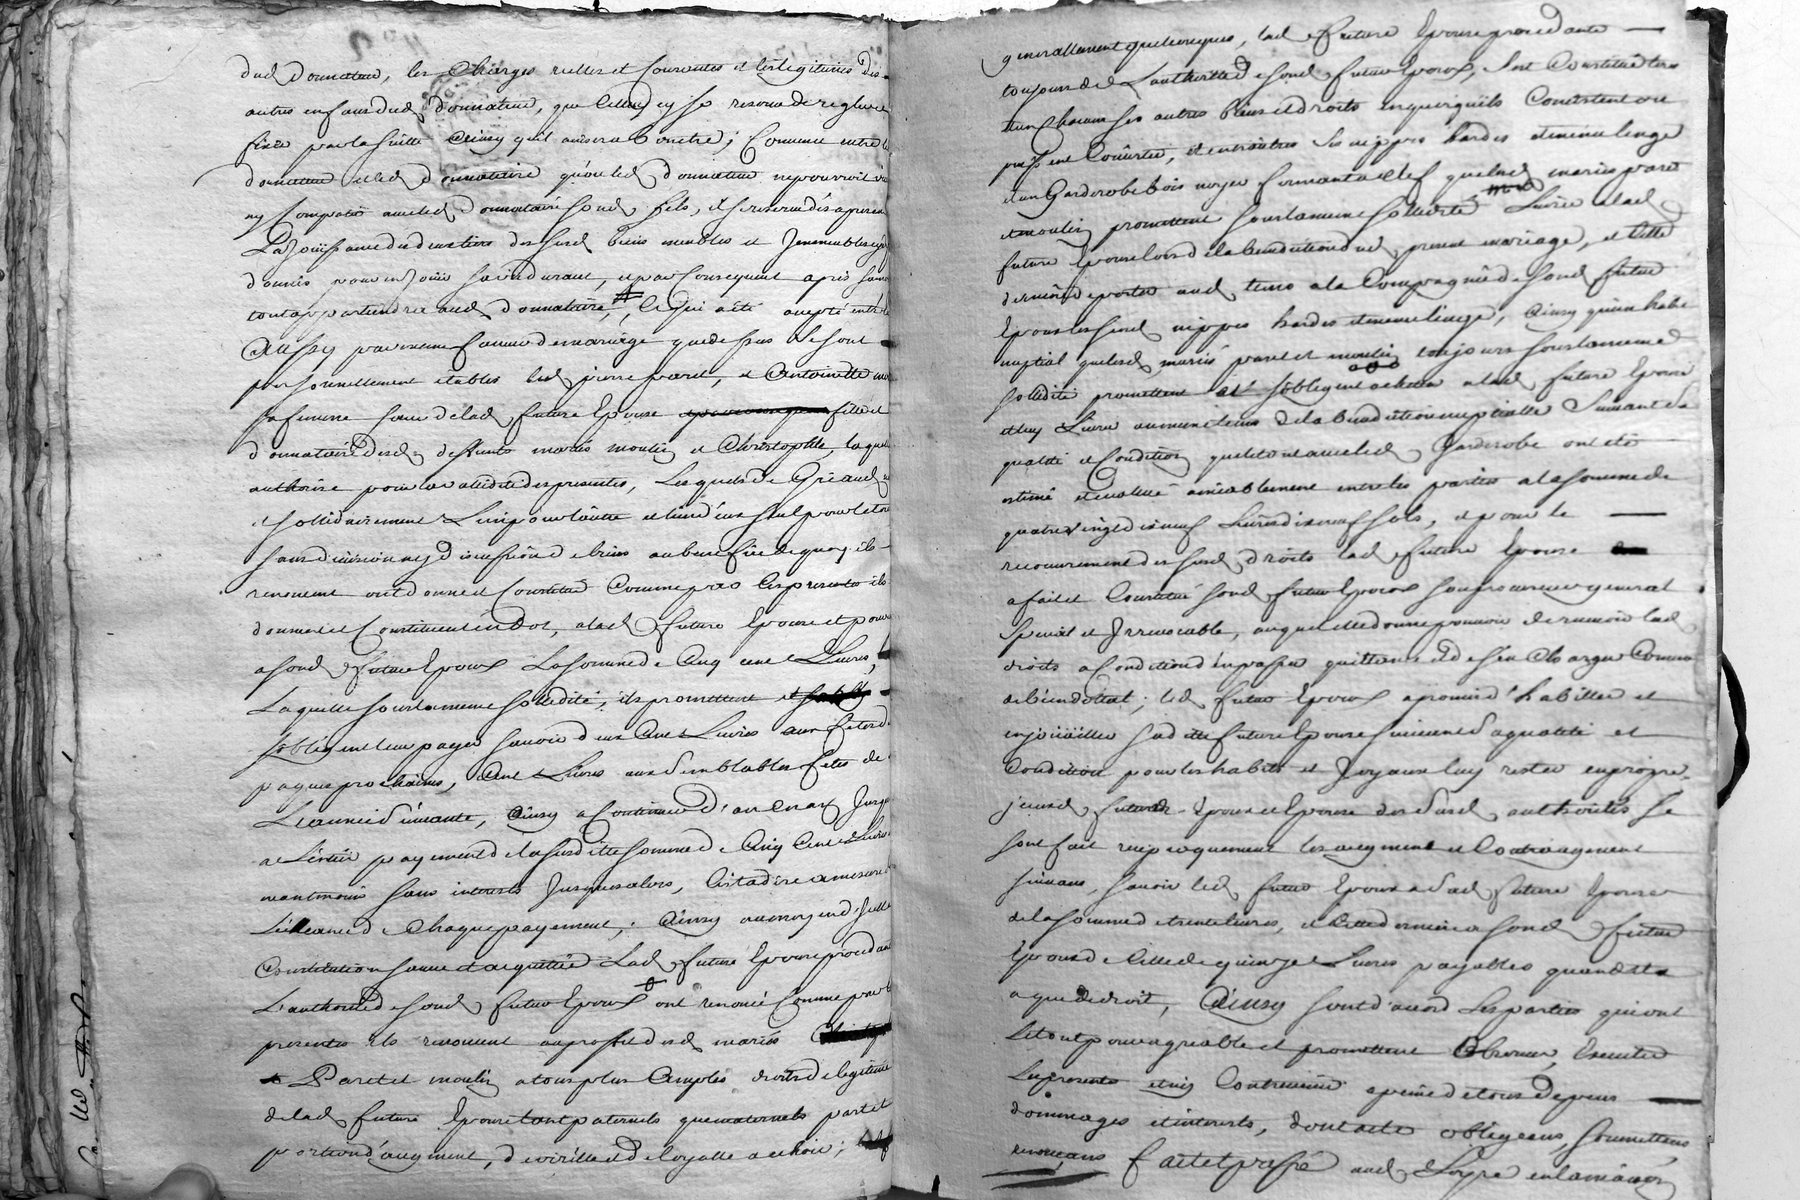 dud donnateur, les Charges reelles et Courantes et les legitimes des
autres enfans dud donnateur, que led
fixer par la suitte Ainsy quil avisera bon etre; Comme entre le
donnateur et led donnataire qu'ou led donnateur ne pourroit
ny Compatir avec led donnataire son d fils, il se reserve des a present
La Jouissance des deux tiers des susd biens meubles et Jmmeubles cy
donnés pour en Jouir sa vie durant, et par Consequent apres sa mort
tout appartiendra aud donnataire, Ce qui a été accepté entre
Aussy par meme faveur de mariage que dessus Se sont
personnellement etablis led pierre paret, et Antoinette mou
sa femme sœur de lad future Epouse fille et
donnataire desd deffunts mariés moulin et Christophle, laquelle
authorise pour la validité des presentes, Lesquels de Gré aud
et sollidairement L'un pour l'autre et l'un d'eux seul pour le tout
sans division ny discussion de biens au benefice de quoy ils
renoncent ont donné et Constitué Comme par les presentes ils
donnent et Constituent en dot, a lad future Epouse et pour
a sond futur Epoux La somme de Cinq cent Livres,
Laquelle sous la meme sollidité, ils promettent
s'obligent leur payer savoir deux Cent Livres aux fetes de
paques prochaines, Cent Livres aux semblables fetes de
L'année suivante, Ainsy a Continuer d'an en an Jusqu
a L'entier payement de la susditte somme de Cinq Cent Livres
neantmoins sans interets Jusques alors, C'est a dire a mesure
L'echeance de Chaque payement; Ainsy au moyen d'Jcelle
Constitution sauve et acquittée Lad future Epouse procedant
L'authorité de sond futur Epoux ont renoncé Comme par les
presentes ils renoncent au proffit desd mariés
Paret et moulin a tous plus Amples droits de legitime
de lad future Epouse tant paternels que maternels part et
portion d'augment, de virille et de loyalle a echoir;
generallement quelconques, lad future Epouse procedante
toujours de L'authorité de sond futur Epoux, s'est Constituée tous
Un Chacuns ses autres biens et droits en quoy qu'ils Consistent ou
puissent Consister, et entr'autres ses nippes hardes et menu linge
et un Garderobe bois noyer fermant a clef que lesd mariés paret
et moulin promettent sous la meme sollidité Livrer a lad
future Epouse lors de la benediction du present mariage, et Cette
derniere de porter aud tems a la Compagnie de sond futur
Epoux lesd nippes hardes et menu linge, Ainsy qu'un habit
nuptial que lesd mariés paret et moulin toujours sous la meme
sollidité promettent et s'obligent acheter a lad future Epouse
et luy Livrer au meme tems de la benediction nuptialle Suivant Sa
qualité et Condition, que le tout avec led Garderobe ont été
estimé et evalué amiablement entre les parties a la somme de
quatre vingt dix neuf Livres dix neuf sols, et pour le
recouvrement des susd droits lad future Epouse
a fait et Constitué sond futur Epoux son procureur general
Special et Jrrevocable, auquel elle donne pouvoir de recevoir lesd
droits a Condition d'en passer quittance et d'en Charger Comme
de bien dottal; led futur Epoux a promis d'habiller et
enjouailler sad future Epouse suivant sa qualité et
Condition pour les habits et Joyaux luy rester en propre,
Jceux d futurs Epoux et Epouse des susd authorités se
sont fait reciproquement les augment et Contraugment
suivans, savoir led futur Epoux a sad future Epouse
de la somme de trente livres, et Cette derniere a sond futur
Epoux de Celle de quinze Livres payables quand et
a qui de droit, Ainsy sont d'accord Les parties qui ont
le tout pour agreable et promettent observer, Executer
les presentes et n'y Contrevenir a peine de tous depens
dommages et interets, dont acte obligeans, soumettans
renonçans fait et passé aud Loyre en la maison